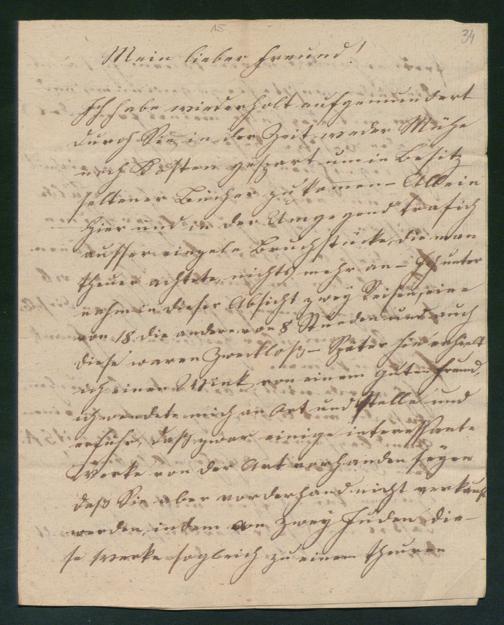 34
15
Mein lieber Freund!
Ich habe wiederholt aufgemundert
durch Sie, in der Zeit weder Mühe
noch Kosten gespart um in Besitz
seltener Bücher zu komen – Allein
hier und in der Umgegend traf ich
ausser einzele Bruchstücke, die man
theuer achtete, nichts mehr an – Ich unter
nahm in dieser Absicht zwey Reisen, eine
von 18 die andere von 8 Stunden und auch
diese waren Zwecklos – Später hin erhielt
ich einen Wink von einem guten Freund,
ich wendete mich an Ort und Stelle und
erfuhr, daß zwar einige interessante
Werke von der Art vorhanden seyen
daß Sie aber vorderhand nicht verkauft
werden, indem an zwey Juden die-
se Werke sogleich zu einem theuren